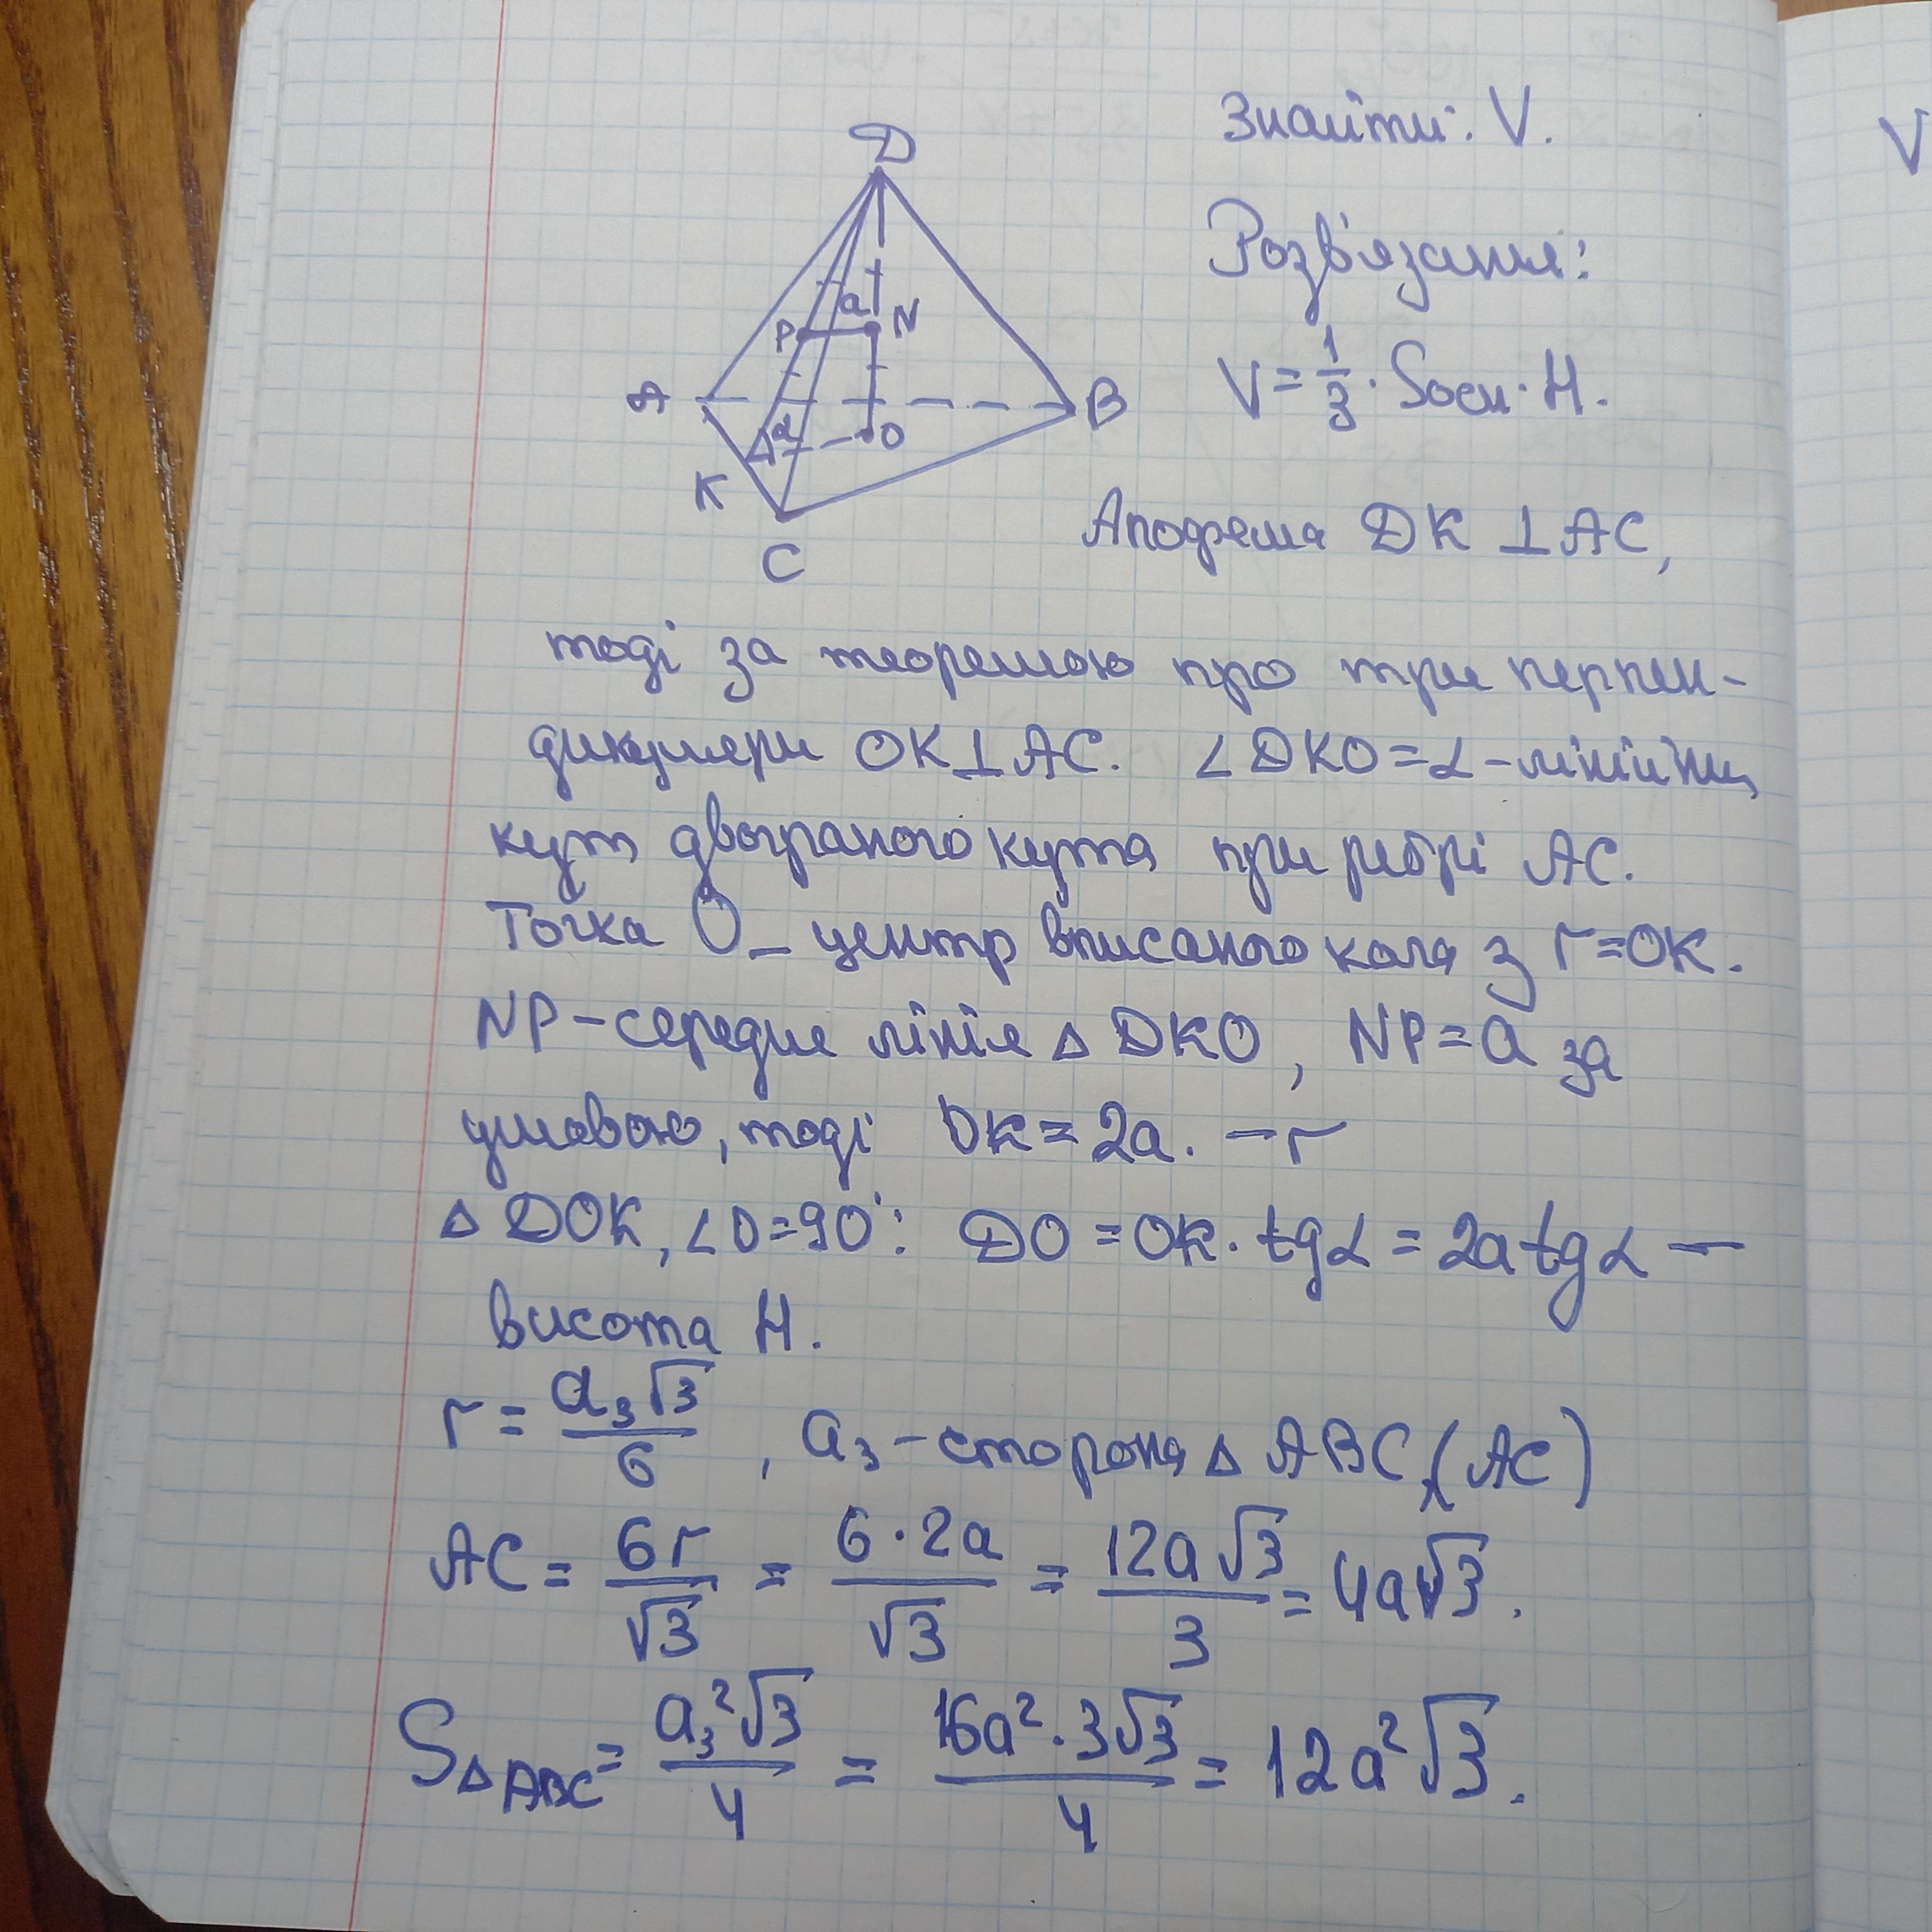 Знайти: V.
V
Розв'язання:
D
a
P
N
A
B
α
O
K
C
V = 1/3 · Sосн · H.
Апофема DK ⊥ AC,
тоді за теоремою про три перпен-
дикуляри OK ⊥ AC. ∠DKO = α – лінійний
кут двогранного кута при ребрі AC.
Точка O – центр вписаного кола з r = OK.
NP – середня лінія △ DKO, NP = a за
умовою, тоді OK = 2a. – r
△ DOK, ∠O = 90°: DO = OK · tgα = 2a tgα –
висота H.
r = a₃√3/6, a₃ – сторона △ ABC (AC)
AC = 6r/√3 = 6·2a/√3 = 12a√3/3 = 4a√3.
S△ABC = a₃²√3/4 = 16a²·3√3/4 = 12a²√3.